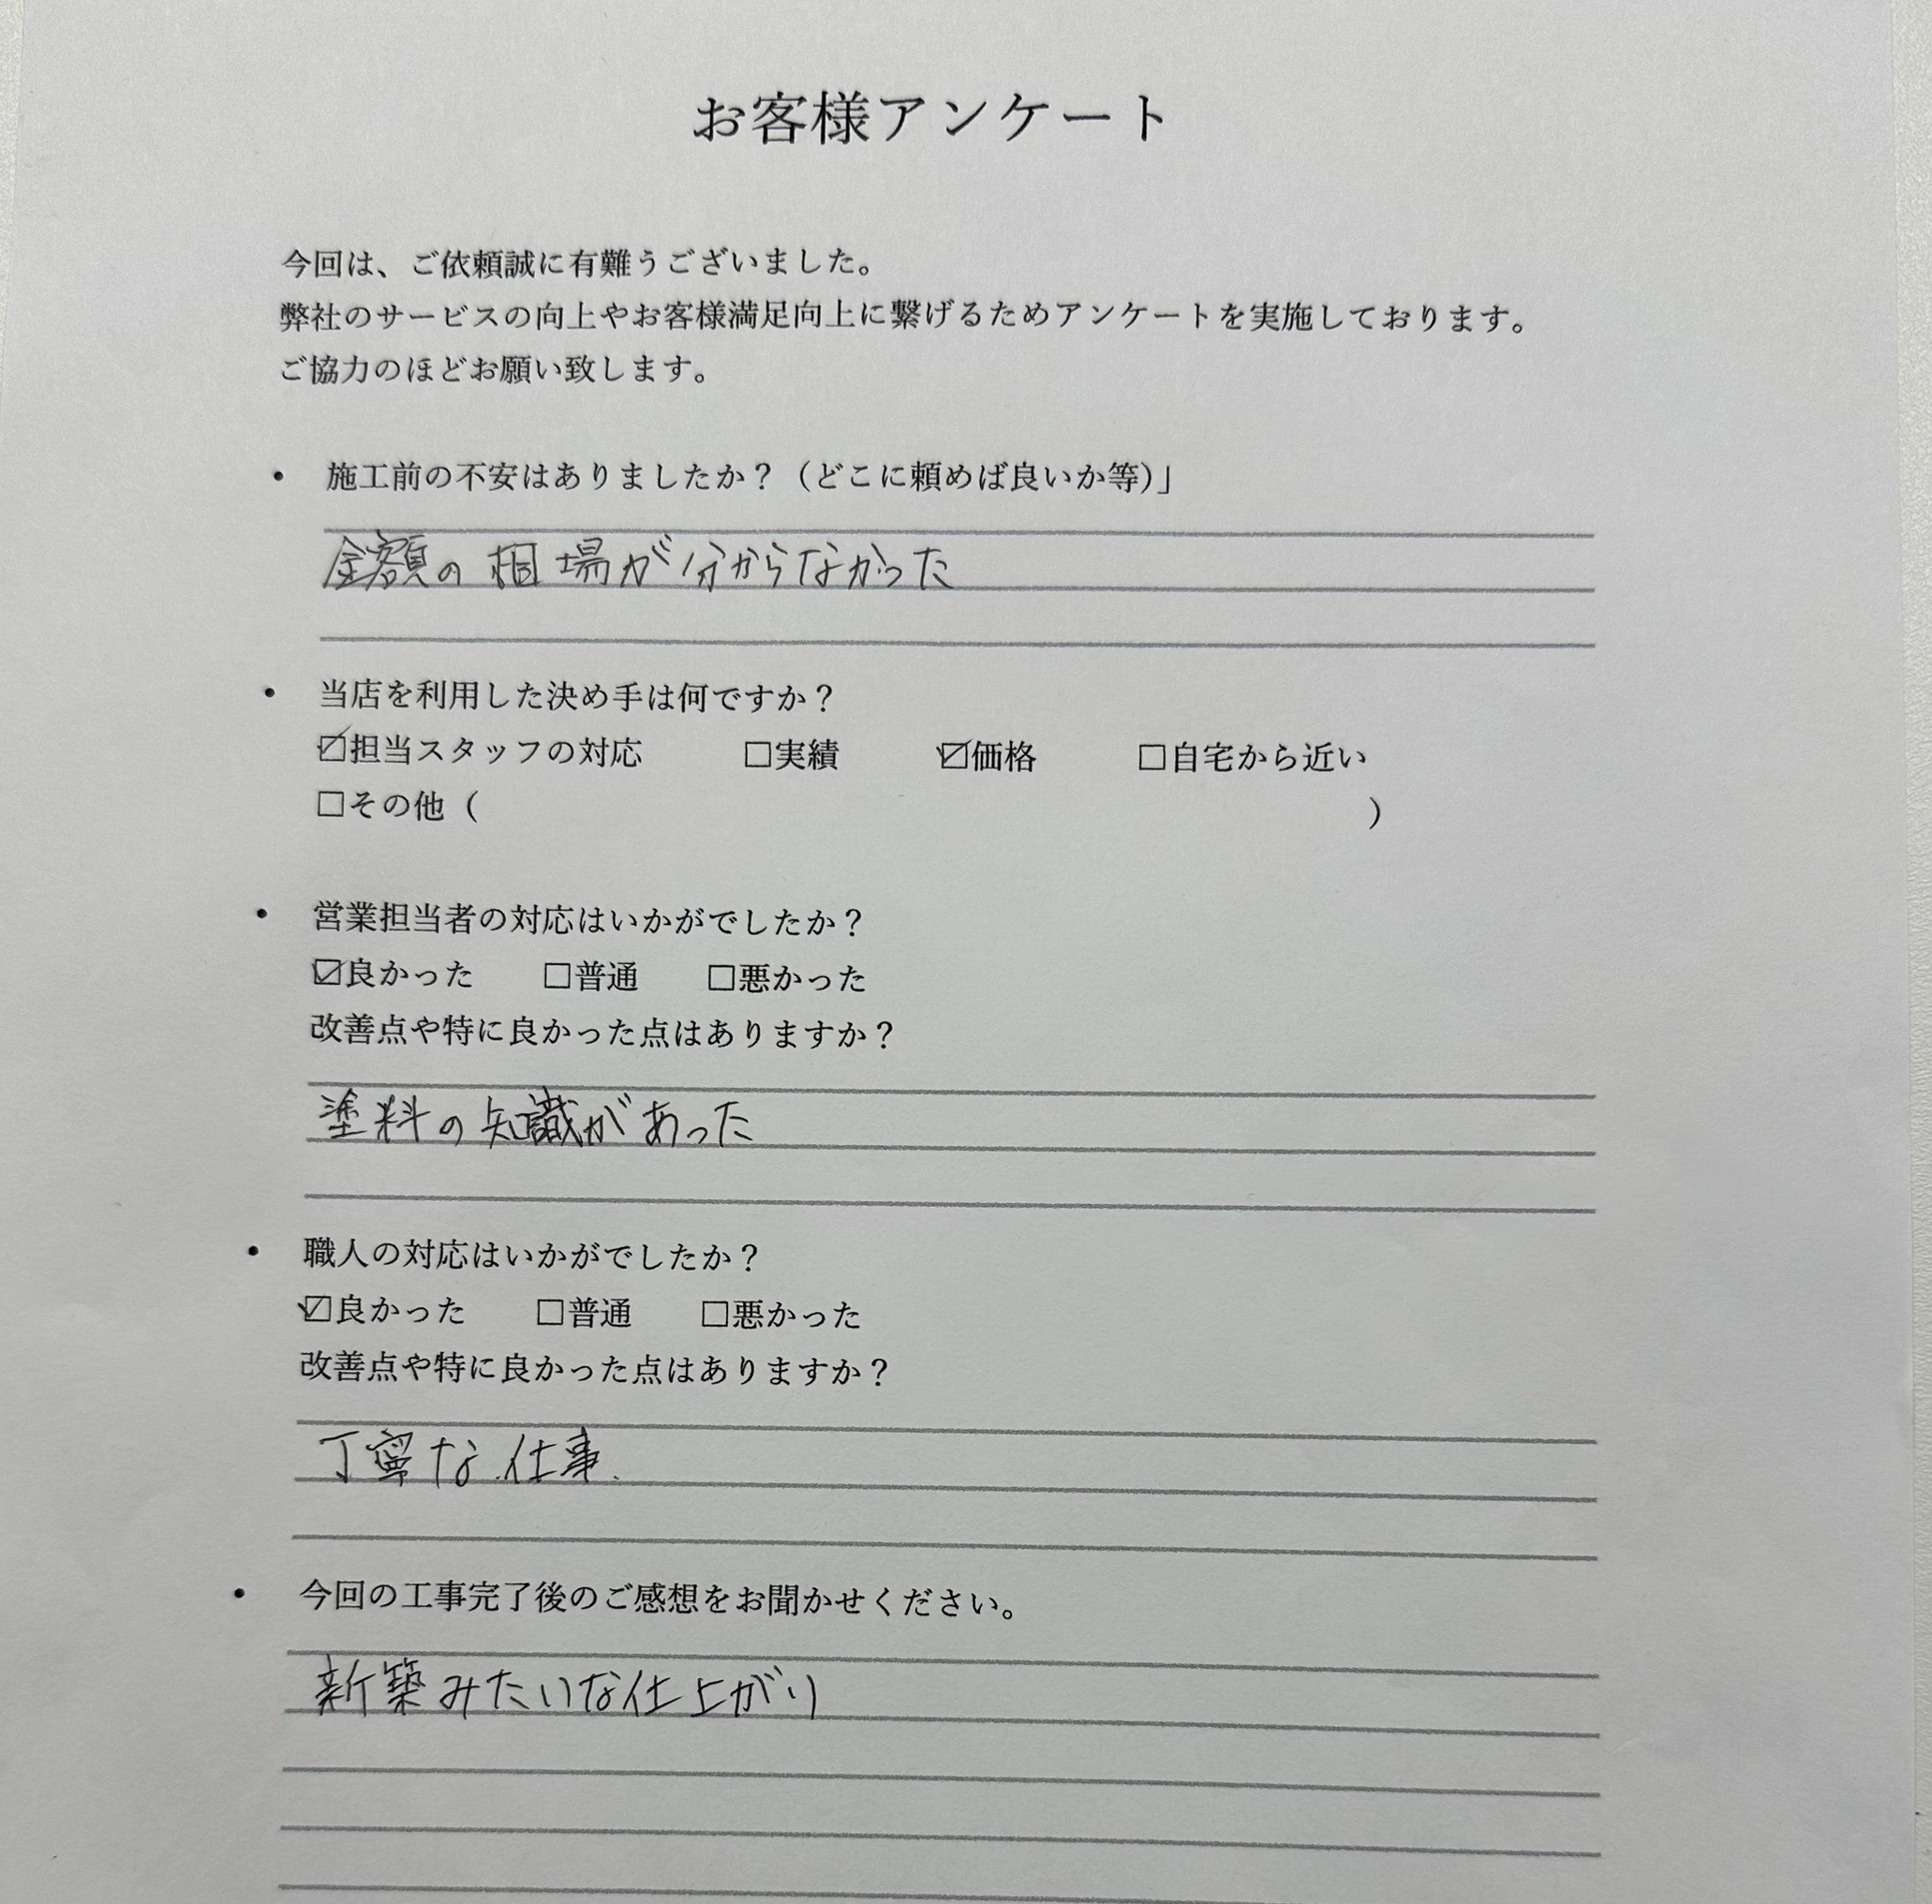 お客様アンケート
今回は、ご依頼誠に有難うございました。
弊社のサービスの向上やお客様満足向上に繋げるためアンケートを実施しております。
ご協力のほどお願い致します。
• 施工前の不安はありましたか？（どこに頼めば良いか等）」
金額の相場が分からなかった
• 当店を利用した決め手は何ですか？
☑担当スタッフの対応 □実績 ☑価格 □自宅から近い
□その他（ ）
• 営業担当者の対応はいかがでしたか？
☑良かった □普通 □悪かった
改善点や特に良かった点はありますか？
塗料の知識があった
• 職人の対応はいかがでしたか？
☑良かった □普通 □悪かった
改善点や特に良かった点はありますか？
丁寧な仕事.
• 今回の工事完了後のご感想をお聞かせください。
新築みたいな仕上がり